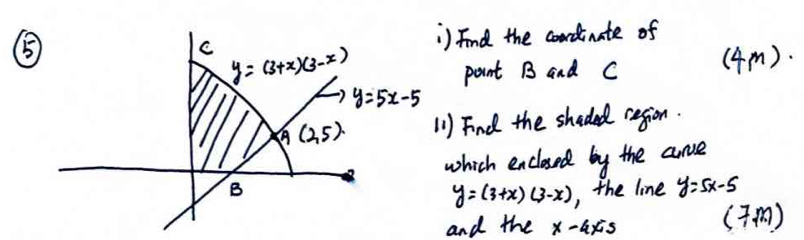 5
C
y = (3+x)(3-x)
y=5x-5
A (2,5).
B
i) Find the coordinate of
point B and C
(4m).
ii) Find the shaded region.
which enclosed by the curve
y=(3+x)(3-x), the line y=5x-5
and the x-axis
(7m)